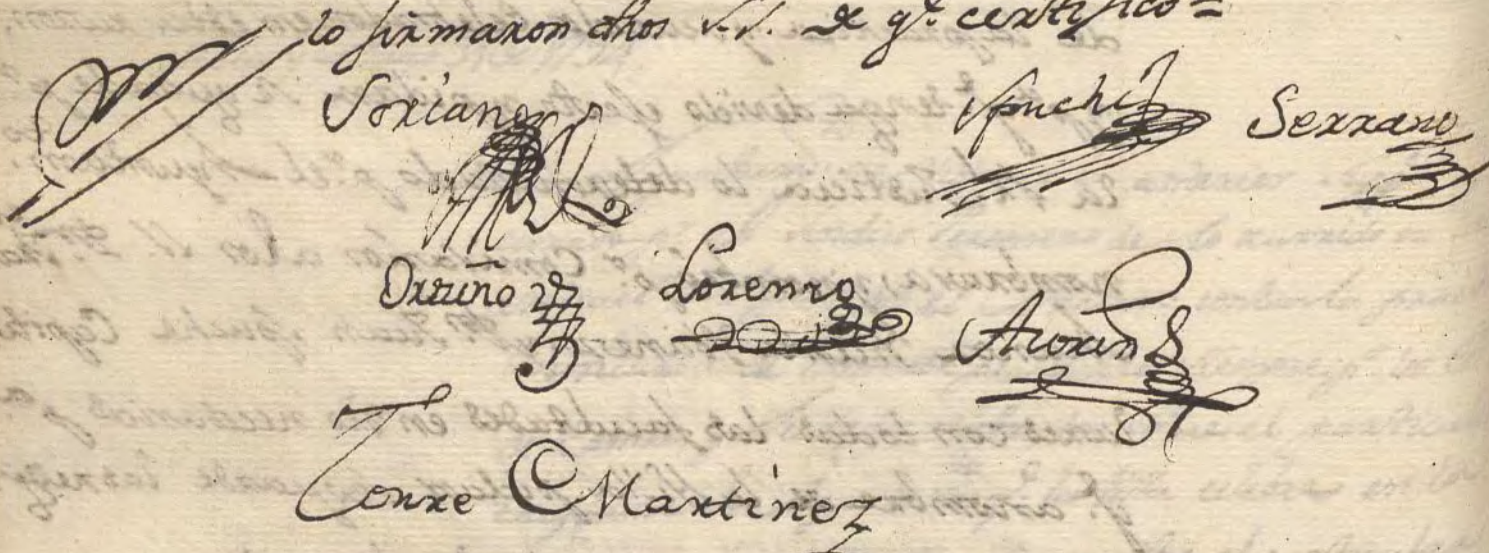 lo firmaron dhos S.S. de q.e certifico=
Soriano Spuche Serrano
Ortuño Lorenzo Azorin
Torre Martinez